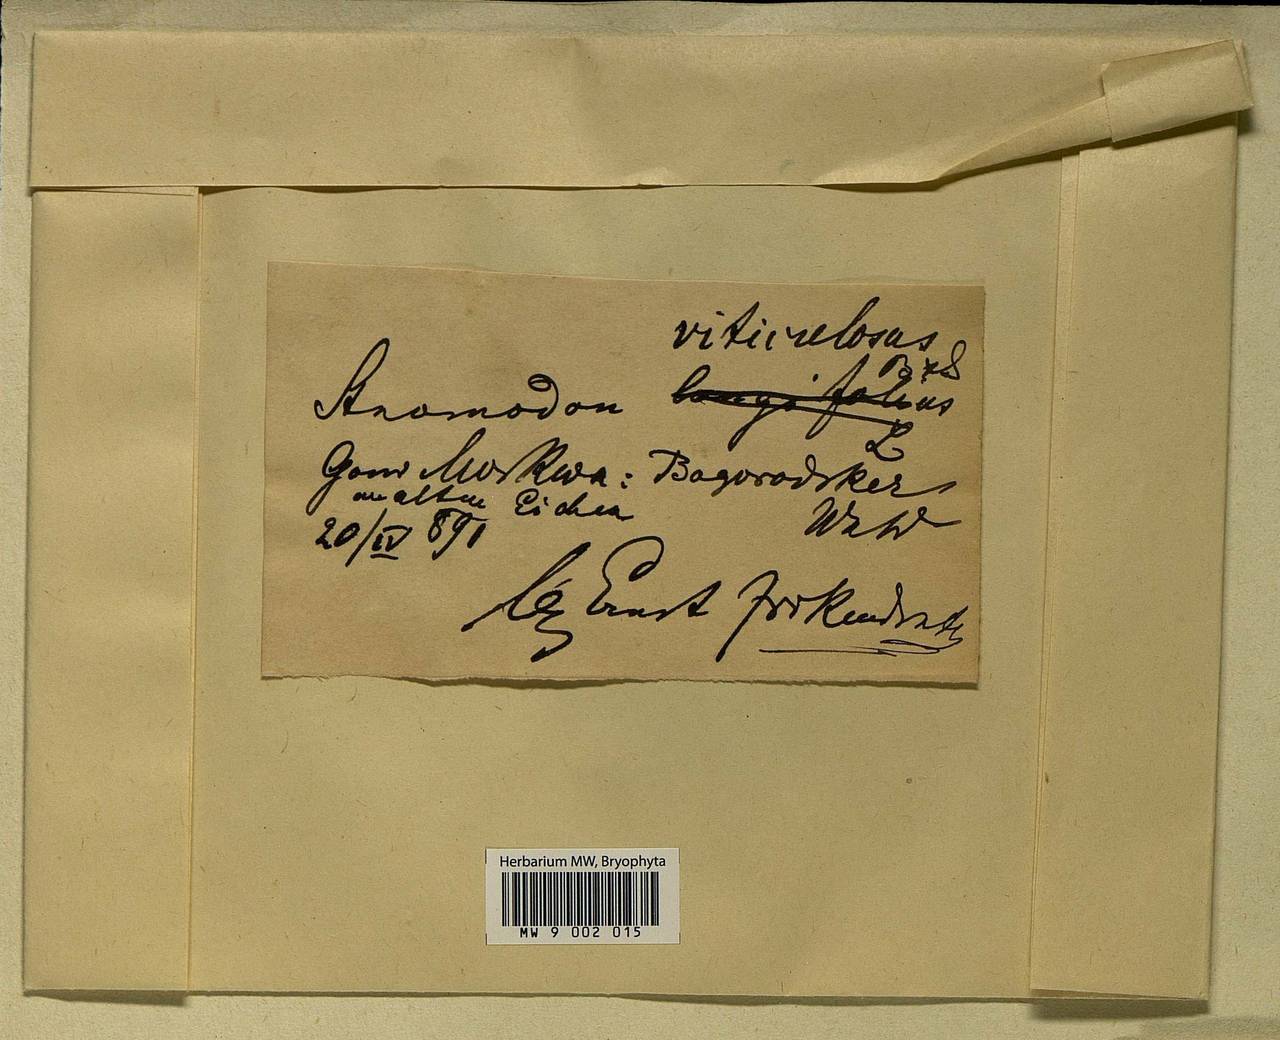 viticulosus
Anomodon longifolius
L
Gouv Moskwa: Bogorodsker
an alten Eichen Wald
20/IV 891
leg Ernst Zickendrath
Herbarium MW, Bryophyta
MW 9 002 015